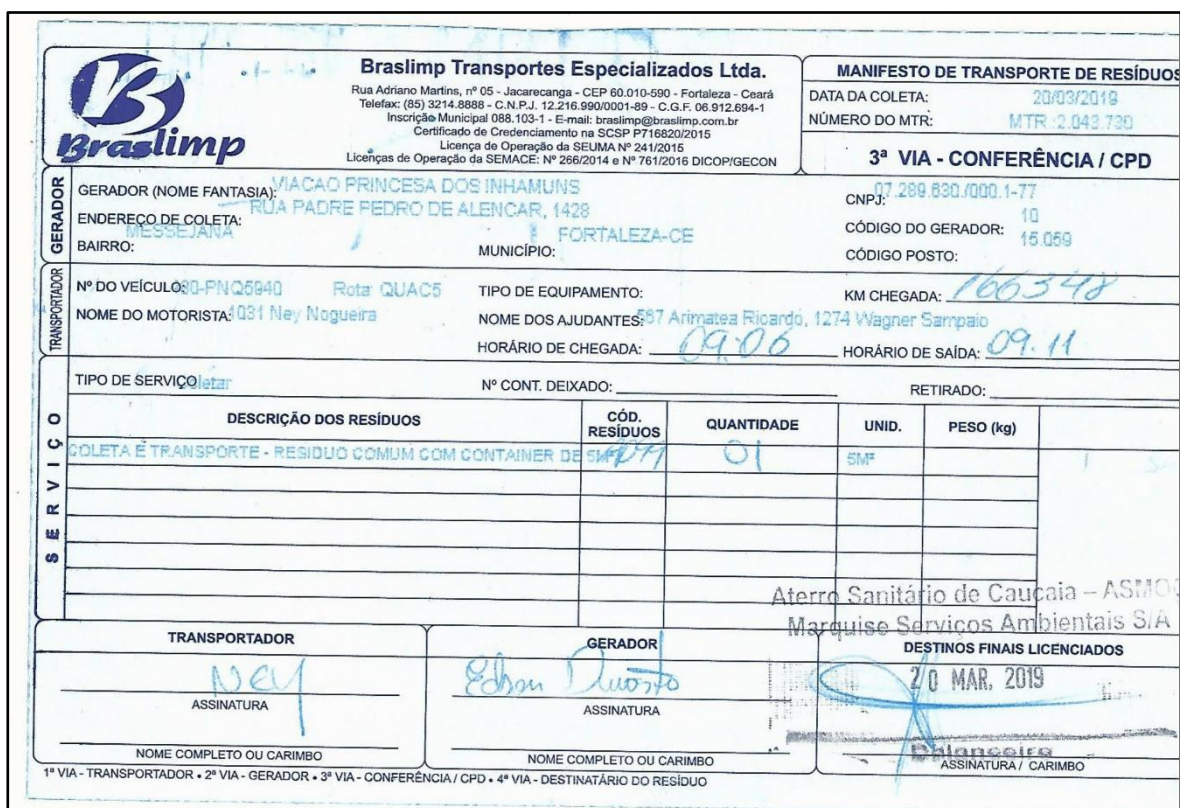 Braslimp
Braslimp Transportes Especializados Ltda.
Rua Adriano Martins, nº 05 - Jacarecanga - CEP 60.010-590 - Fortaleza - Ceará
Telefax: (85) 3214.8888 - C.N.P.J. 12.216.990/0001-89 - C.G.F. 06.912.694-1
Inscrição Municipal 088.103-1 - E-mail: braslimp@braslimp.com.br
Certificado de Credenciamento na SCSP P716820/2015
Licença de Operação da SEUMA Nº 241/2015
Licenças de Operação da SEMACE: Nº 266/2014 e Nº 761/2016 DICOP/GECON
MANIFESTO DE TRANSPORTE DE RESÍDUOS
DATA DA COLETA: 20/03/2019
NÚMERO DO MTR: MTR :2.043.730
3ª VIA - CONFERÊNCIA / CPD
GERADOR
GERADOR (NOME FANTASIA): VIACAO PRINCESA DOS INHAMUNS
CNPJ: 07.289.630./000.1-77
ENDEREÇO DE COLETA: RUA PADRE PEDRO DE ALENCAR, 1428
CÓDIGO DO GERADOR: 10
BAIRRO: MESSEJANA
MUNICÍPIO: FORTALEZA-CE
CÓDIGO POSTO: 15.059
TRANSPORTADOR
Nº DO VEÍCULO: PNQ5940 Rota: QUAC5
TIPO DE EQUIPAMENTO:
KM CHEGADA: 166348
NOME DO MOTORISTA: 1031 Ney Nogueira
NOME DOS AJUDANTES: 567 Arimatea Ricardo, 1274 Wagner Sampaio
HORÁRIO DE CHEGADA: 09:06 HORÁRIO DE SAÍDA: 09.11
SERVIÇO
TIPO DE SERVIÇO Coletar
Nº CONT. DEIXADO:
RETIRADO:
DESCRIÇÃO DOS RESÍDUOS CÓD. RESÍDUOS QUANTIDADE UNID. PESO (kg)
COLETA E TRANSPORTE - RESIDUO COMUM COM CONTAINER DE 5M³ 01 5M³
Aterro Sanitário de Caucaia – ASMOC
Marquise Serviços Ambientais S/A
TRANSPORTADOR
Ney
ASSINATURA
NOME COMPLETO OU CARIMBO
GERADOR
Edson
ASSINATURA
NOME COMPLETO OU CARIMBO
DESTINOS FINAIS LICENCIADOS
20 MAR. 2019
Balanceiro
ASSINATURA / CARIMBO
1ª VIA - TRANSPORTADOR • 2ª VIA - GERADOR • 3ª VIA - CONFERÊNCIA / CPD • 4ª VIA - DESTINATÁRIO DO RESÍDUO